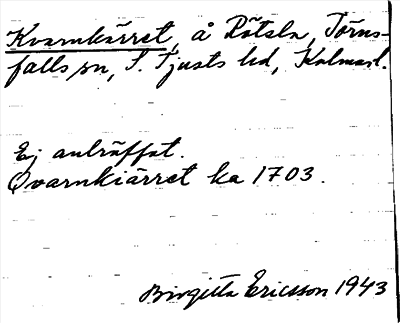 Kvarnkärret, å Rötsla, Törns-
falls sn, S. Tjusts hd, Kalmar l.
Ej anträffat.
Qvarnkiärret ka 1703.
Birgitta Ericsson 1943